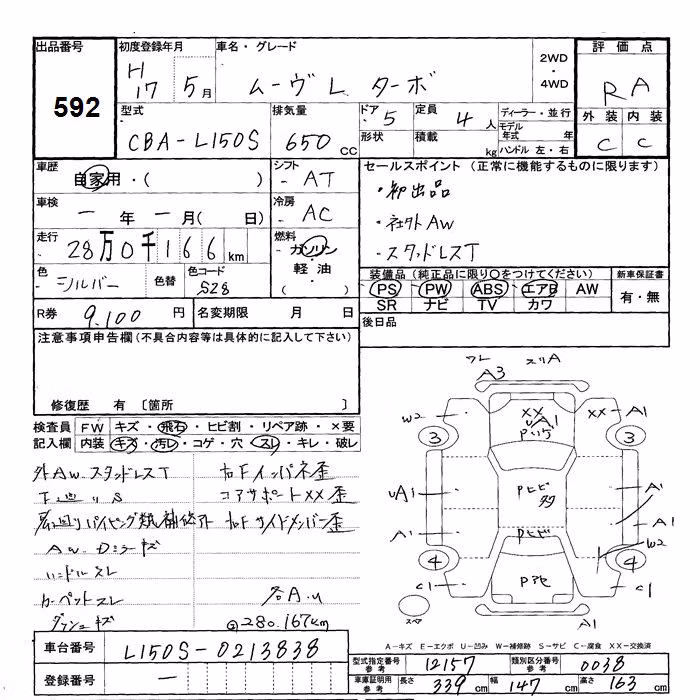 出品番号 初度登録年月 車名・グレード 2WD・4WD 評価点
592 H17 5月 ムーヴL ターボ RA
型式 排気量 ドア 5 定員 4人 ディーラー・並行 外装 内装
CBA-L150S 650cc 形状 積載 kg モデル年式 年 ハンドル 左・右 C C
車歴 シフト セールスポイント (正常に機能するものに限ります)
自家用・( ) AT ・初出品
車検 冷房
一年一月( 日) AC ・社外AW
走行 燃料
28万0千166km ガソリン・軽油・( ) ・スタッドレスT
色 シルバー 色替 色コード S28
装備品 (純正品に限り○をつけてください) 新車保証書
PS PW ABS エアB AW 有・無
SR ナビ TV カワ
R券 9,100円 名変期限 月 日 後日品
注意事項申告欄 (不具合内容等は具体的に記入して下さい)
修復歴 有 〔箇所 〕
検査員 FW キズ・飛石・ヒビ割・リペア跡・×要
記入欄 内装 キズ・汚レ・コゲ・穴・スレ・キレ・破レ
外AW スタッドレスT 右Fインパネ歪
下廻りS コアサポートXX歪
右Fサイドメンバー歪
AW Dミラーキズ
ハンドルスレ
カーペットスレ 各A.U
ダッシュキズ ②280.167km
A3
W2 XX UA1 XX A1
3 3
UA1 Pヒビ 多 A1
A1 Pヒビ A1
W2
4 4
C1 C1
スペア A1
A-キズ E-エクボ U-凹み W-補修跡 S-サビ C-腐食 XX-交換済
車台番号 L150S-0213838
型式指定番号 参考 12157 類別区分番号 参考 0038
登録番号 一
車庫証明用 参考 長さ 339cm 幅 147cm 高さ 163cm